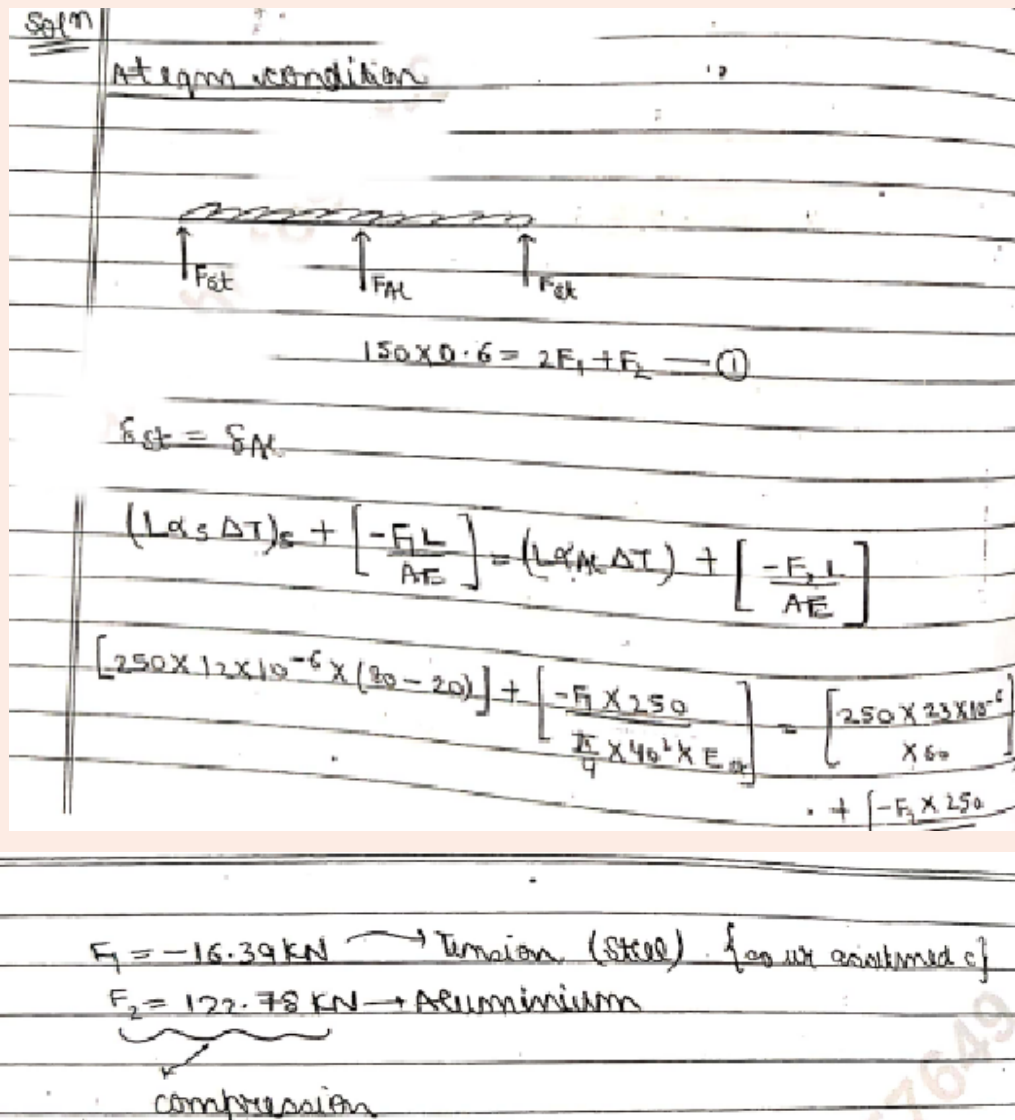 Soln
At eqm condition
Fst FAl Fst
150 × 0.6 = 2F₁ + F₂ — ①
δst = δAl
(L αs ΔT)s + [-F₁L / AE] = (L αAl ΔT) + [-F₂L / AE]
[250 × 12 × 10⁻⁶ × (80 - 20)] + [-F₁ × 250 / π/4 × 40² × Est] = [250 × 23 × 10⁻⁶ × 60]
+ [-F₂ × 250
F₁ = -16.39 KN → Tension (Steel) {as we assumed c}
F₂ = 122.78 KN → Aluminium
compression
7649